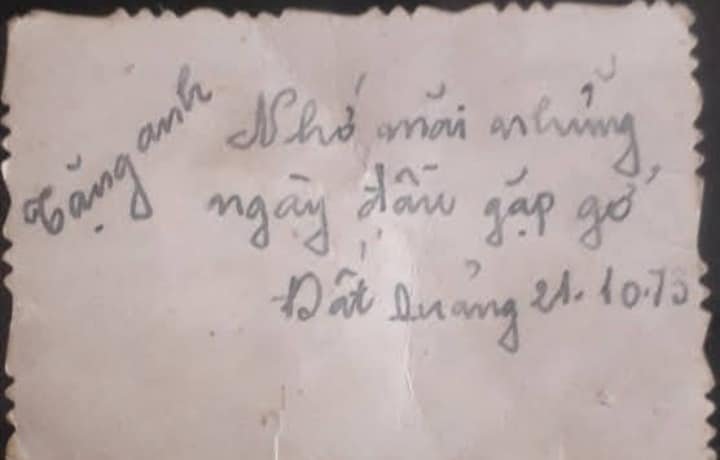 Tặng anh
Nhớ mãi những
ngày đầu gặp gỡ
Đất Quảng 21.10.73